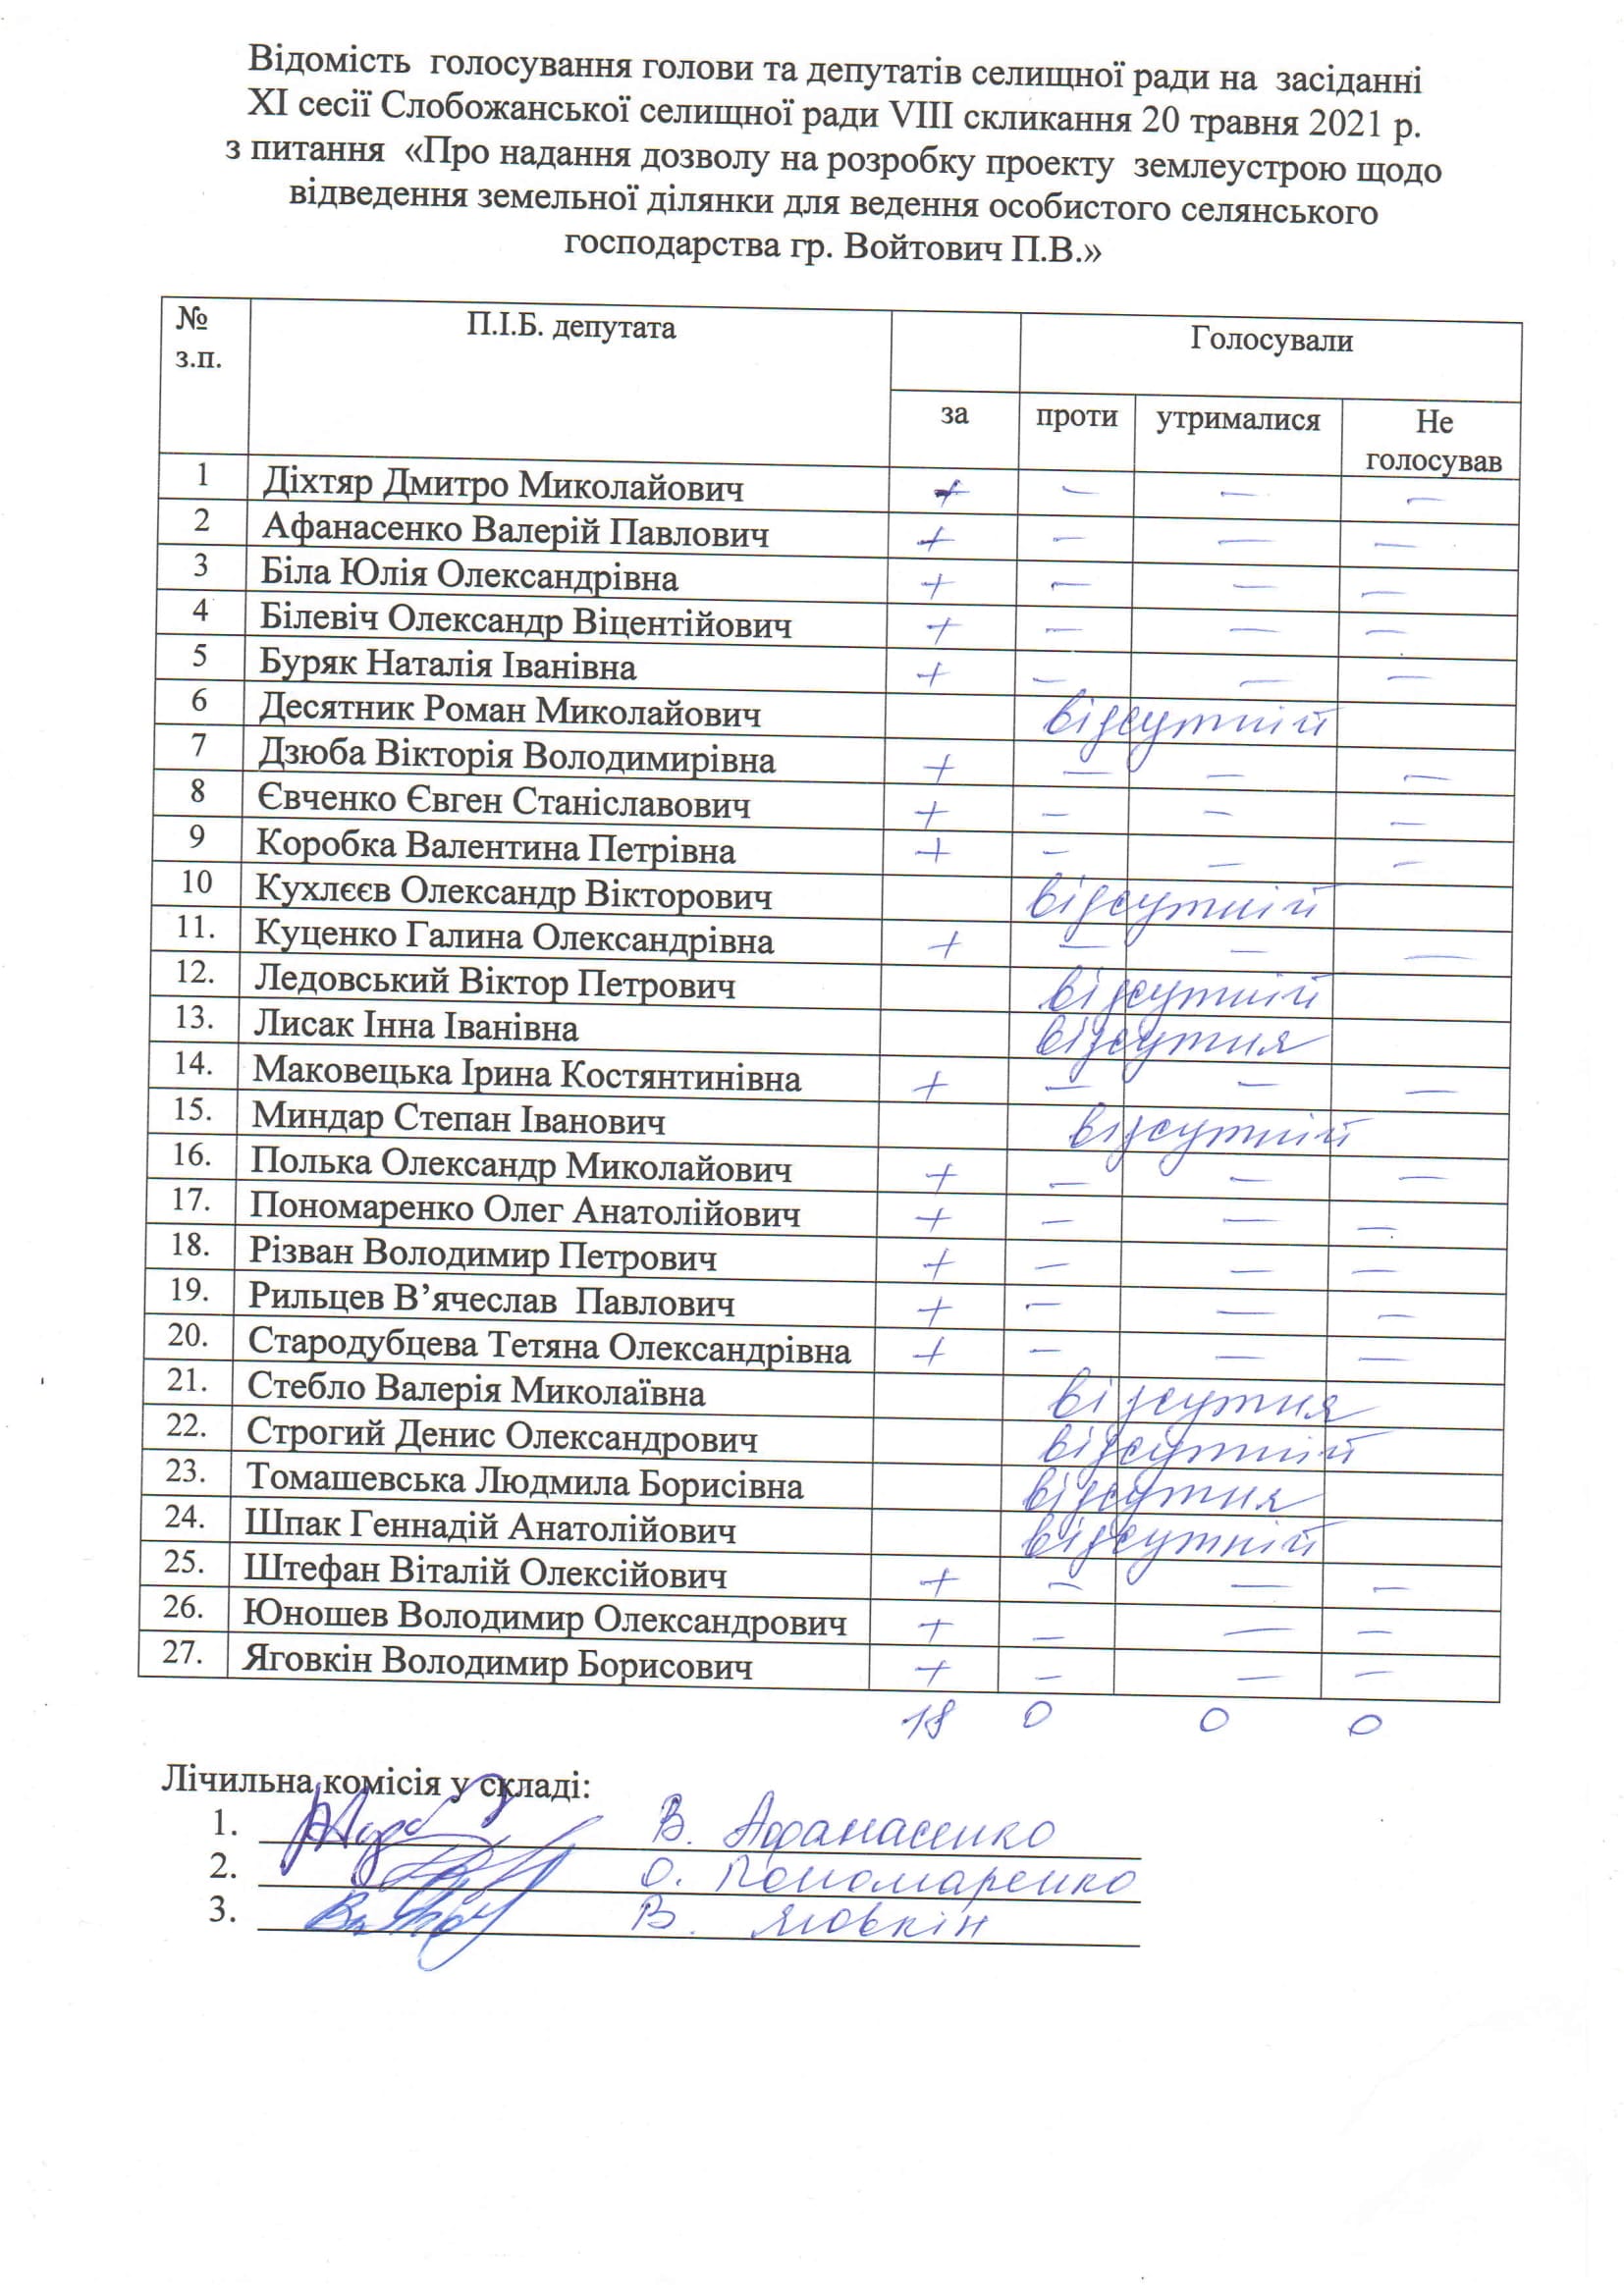 Відомість голосування голови та депутатів селищної ради на засіданні
XI сесії Слобожанської селищної ради VIII скликання 20 травня 2021 р.
з питання «Про надання дозволу на розробку проекту землеустрою щодо
відведення земельної ділянки для ведення особистого селянського
господарства гр. Войтович П.В.»
№ з.п. П.І.Б. депутата Голосували
за проти утрималися Не голосував
1 Діхтяр Дмитро Миколайович + – – –
2 Афанасенко Валерій Павлович + – – –
3 Біла Юлія Олександрівна + – – –
4 Білевіч Олександр Віцентійович + – – –
5 Буряк Наталія Іванівна + – – –
6 Десятник Роман Миколайович відсутній
7 Дзюба Вікторія Володимирівна + – – –
8 Євченко Євген Станіславович + – – –
9 Коробка Валентина Петрівна + – – –
10 Кухлєєв Олександр Вікторович відсутній
11. Куценко Галина Олександрівна + – – –
12. Ледовський Віктор Петрович відсутній
13. Лисак Інна Іванівна відсутня
14. Маковецька Ірина Костянтинівна + – – –
15. Миндар Степан Іванович відсутній
16. Полька Олександр Миколайович + – – –
17. Пономаренко Олег Анатолійович + – – –
18. Різван Володимир Петрович + – – –
19. Рильцев В’ячеслав Павлович + – – –
20. Стародубцева Тетяна Олександрівна + – – –
21. Стебло Валерія Миколаївна відсутня
22. Строгий Денис Олександрович відсутній
23. Томашевська Людмила Борисівна відсутня
24. Шпак Геннадій Анатолійович відсутній
25. Штефан Віталій Олексійович + – – –
26. Юношев Володимир Олександрович + – – –
27. Яговкін Володимир Борисович + – – –
18 0 0 0
Лічильна комісія у складі:
1. В. Афанасенко
2. О. Пономаренко
3. В. Яговкін